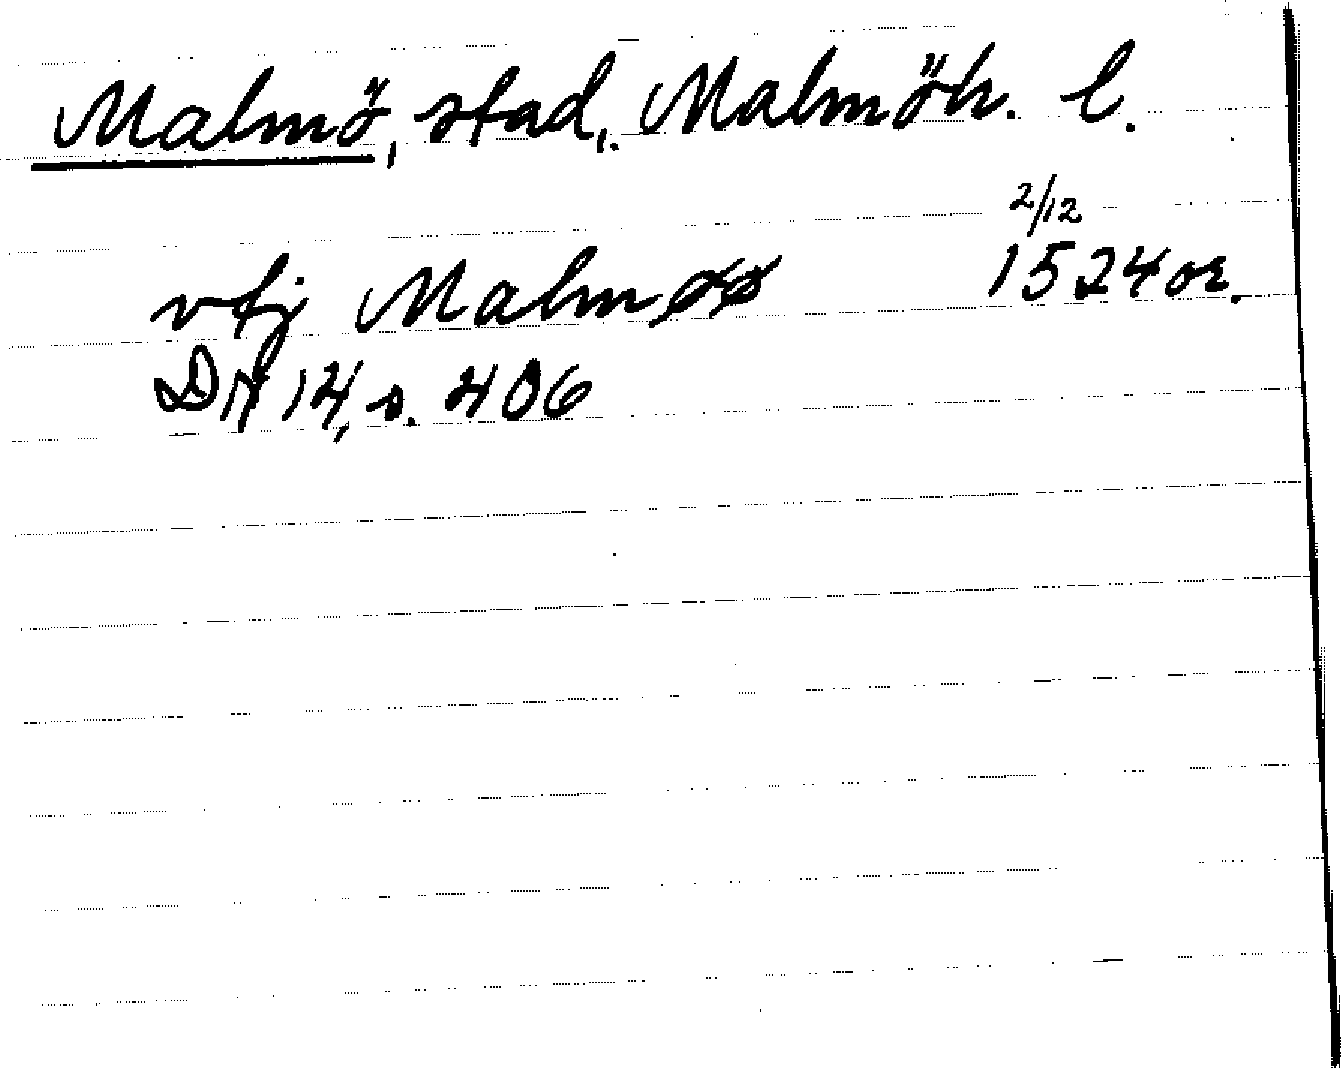 Malmö, stad, Malmöh. l.
2/12
vtj Malmøø 1524 or.
DN 14, s. 406